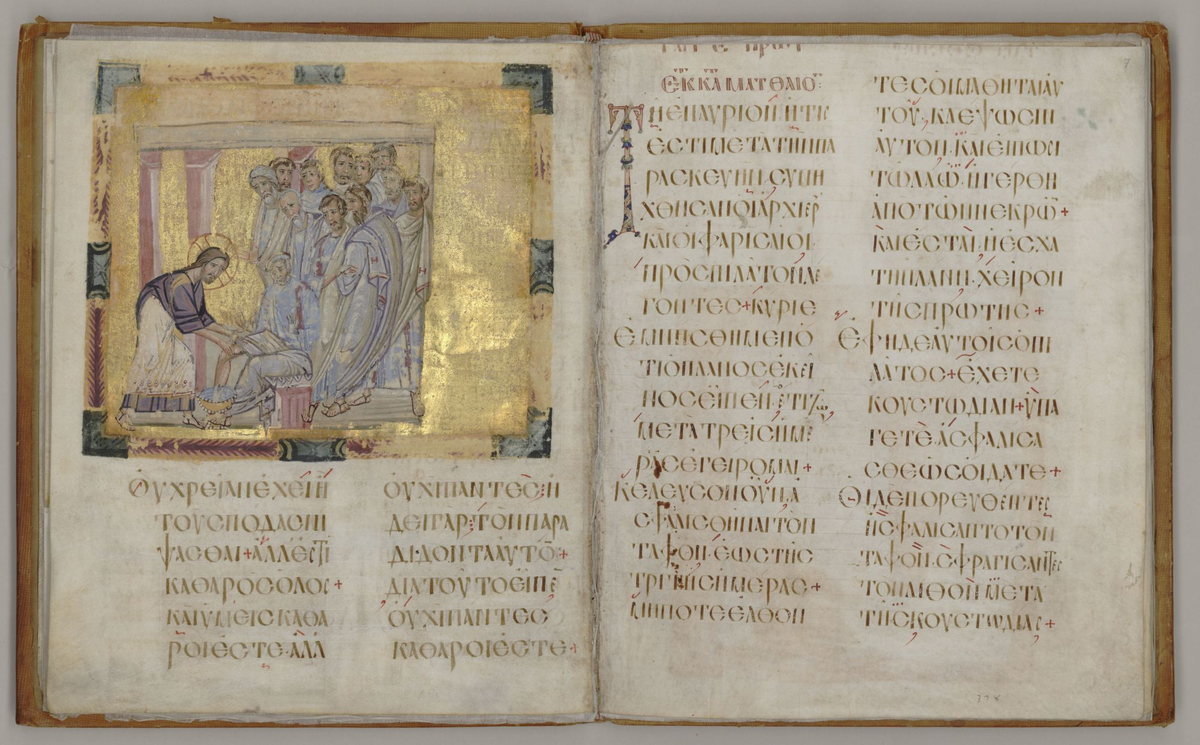 ΟΥΧΡΕΙΑΝΕΧΕΙΗ
ΤΟΥϹΠΟΔΑϹΝΙ
ΨΑϹΘΑΙ+ΑΛΛΕϹΤΙ
ΚΑΘΑΡΟϹΟΛΟϹ+
ΚΑΙΥΜΕΙϹΚΑΘΑ
ΡΟΙΕϹΤΕ·ΑΛΛ
ΟΥΧΙΠΑΝΤΕϹ·Η
ΔΕΙΓΑΡ·ΤΟΝΠΑΡΑ
ΔΙΔΟΝΤΑΑΥΤΟ+
ΔΙΑΤΟΥΤΟΕΙΠΕ
ΟΥΧΙΠΑΝΤΕϹ
ΚΑΘΑΡΟΙΕϹΤΕ+
ΜΑΤΘΑΙΟ
ΤΗΕΠΑΥΡΙΟΝ·ΗΤΙϹ
ΕϹΤΙΜΕΤΑΤΗΝΠΑ
ΡΑϹΚΕΥΗΝ·ϹΥΝΗ
ΧΘΗϹΑΝΟΙΑΡΧΙΕΡ
ΚΑΙΟΙΦΑΡΙϹΑΙΟΙ·
ΠΡΟϹΠΙΛΑΤΟΝΛΕ
ΓΟΝΤΕϹ+ΚΥΡΙΕ
ΕΜΝΗϹΘΗΜΕΝΟ
ΤΙΟΠΛΑΝΟϹΕΚΕΙ
ΝΟϹΕΙΠΕΝ·ΕΤΙΖΩΝ
ΜΕΤΑΤΡΕΙϹΗΜΕ
ΡΑϹΕΓΕΙΡΟΜΑΙ+
ΚΕΛΕΥϹΟΝΟΥΝΑ
ϹΦΑΛΙϹΘΗΝΑΙΤΟΝ
ΤΑΦΟΝ·ΕΩϹΤΗϹ
ΤΡΙΤΗϹΗΜΕΡΑϹ+
ΜΗΠΟΤΕΕΛΘΟΝ
ΤΕϹΟΙΜΑΘΗΤΑΙΑΥ
ΤΟΥ·ΚΛΕΨΩϹΙΝ
ΑΥΤΟΝ·ΚΑΙΕΙΠΩΣΙ
ΤΩΛΑΩ·ΗΓΕΡΘΗ
ΑΠΟΤΩΝΝΕΚΡΩ+
ΚΑΙΕϹΤΑΙ·ΗΕϹΧΑ
ΤΗΠΛΑΝΗ·ΧΕΙΡΟΝ
ΤΗϹΠΡΩΤΗϹ+
ΕΦΗΔΕΑΥΤΟΙϹΟΠΙ
ΛΑΤΟϹ+ΕΧΕΤΕ
ΚΟΥϹΤΩΔΙΑΝ+ΥΠΑ
ΓΕΤΕ·ΑϹΦΑΛΙϹΑ
ϹΘΕΩϹΟΙΔΑΤΕ+
ΟΙΔΕΠΟΡΕΥΘΕΝΤΕϹ
ΗϹΦΑΛΙϹΑΝΤΟΤΟΝ
ΤΑΦΟΝ·ϹΦΡΑΓΙϹΑΝΤΕϹ
ΤΟΝΛΙΘΟΝΜΕΤΑ
ΤΗϹΚΟΥϹΤΩΔΙΑϹ+